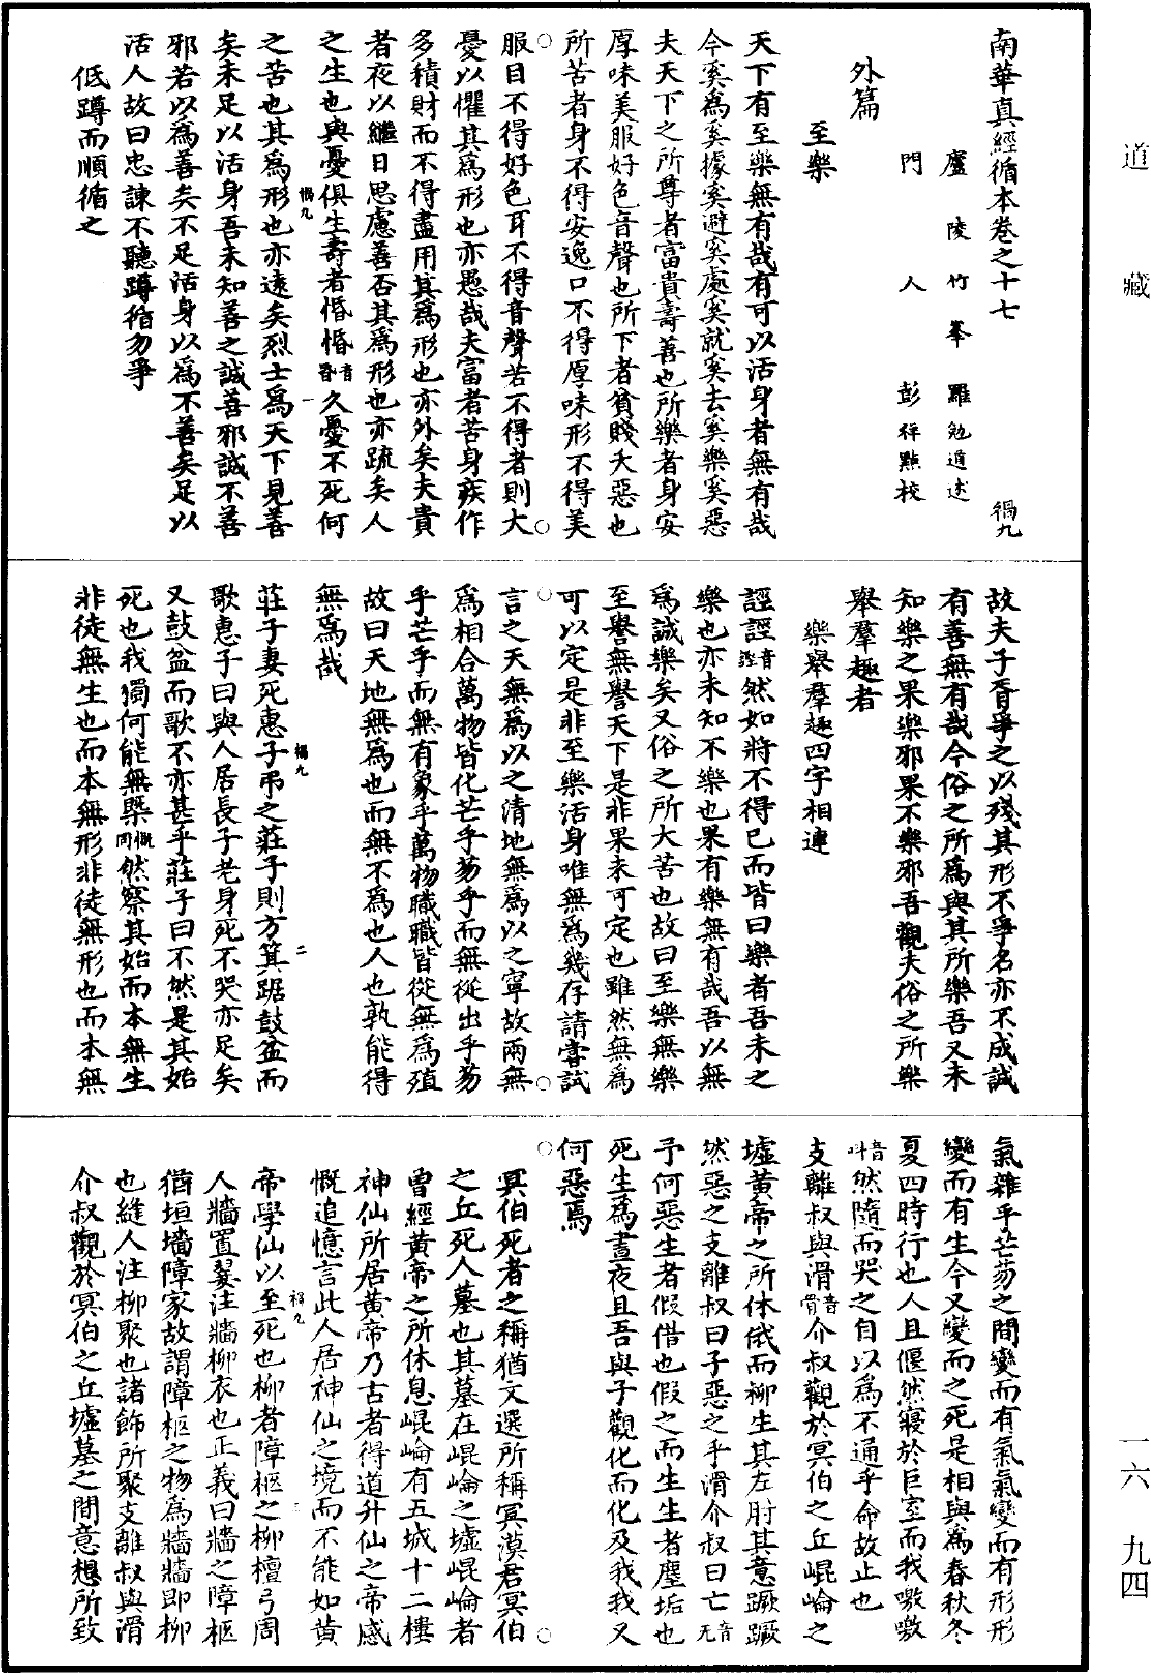 道藏
一六 九四
南華真經循本卷之十七 禍九
廬陵竹峯羅勉道述
門人彭祥點校
外篇
至樂
天下有至樂無有哉有可以活身者無有哉
今奚為奚據奚避奚處奚就奚去奚樂奚惡
夫天下之所尊者富貴壽善也所樂者身安
厚味美服好色音聲也所下者貧賤夭惡也
所苦者身不得安逸口不得厚味形不得美
服目不得好色耳不得音聲若不得者則大
憂以懼其為形也亦愚哉夫富者苦身疾作
多積財而不得盡用其為形也亦外矣夫貴
者夜以繼日思慮善否其爲形也亦疏矣人
之生也與憂俱生壽者惛惛音昏久憂不死何
禍九 一
之苦也其爲形也亦遠矣烈士爲天下見善
矣未足以活身吾未知善之誠善邪誠不善
邪若以爲善矣不足活身以爲不善矣足以
活人故曰忠諫不聽蹲循勿爭
低蹲而順循之
故夫子胥爭之以殘其形不爭名亦不成誠
有善無有哉今俗之所爲與其所樂吾又未
知樂之果樂邪果不樂邪吾觀夫俗之所樂
舉羣趣者
樂舉羣趣四字相連
誙誙音鏗然如將不得已而皆曰樂者吾未之
樂也亦未知不樂也果有樂無有哉吾以無
爲誠樂矣又俗之所大苦也故曰至樂無樂
至譽無譽天下是非果未可定也雖然無爲
可以定是非至樂活身唯無爲幾存請嘗試
言之天無爲以之清地無爲以之寧故兩無
爲相合萬物皆化芒乎芴乎而無從出乎芴
乎芒乎而無有象乎萬物職職皆從無爲殖
故曰天地無爲也而無不爲也人也孰能得
無爲哉
禍九 二
莊子妻死惠子弔之莊子則方箕踞鼓盆而
歌惠子曰與人居長子老身死不哭亦足矣
又鼓盆而歌不亦甚乎莊子曰不然是其始
死也我獨何能無槩慨同然察其始而本無生
非徒無生也而本無形非徒無形也而本無
氣雜乎芒芴之間變而有氣氣變而有形形
變而有生今又變而之死是相與爲春秋冬
夏四時行也人且偃然寢於巨室而我噭噭
音叫然隨而哭之自以爲不通乎命故止也
支離叔與滑音骨介叔觀於冥伯之丘崐崘之
墟黃帝之所休俄而柳生其左肘其意蹶蹶
然惡之支離叔曰子惡之乎滑介叔曰亡音无
予何惡生者假借也假之而生生者塵垢也
死生爲晝夜且吾與子觀化而化及我我又
何惡焉
冥伯死者之稱猶文選所稱冥漠君冥伯
之丘死人墓也其墓在崐崘之墟崐崘者
曾經黃帝之所休息崐崘有五城十二樓
神仙所居黃帝乃古者得道升仙之帝感
慨追憶言此人居神仙之境而不能如黃
禍九 三
帝學仙以至死也柳者障柩之柳檀弓周
人牆置翣注牆柳衣也正義曰牆之障柩
猶垣墻障家故謂障柩之物爲牆牆即柳
也縫人注柳聚也諸飾所聚支離叔與滑
介叔觀於冥伯之丘墟墓之間意想所致